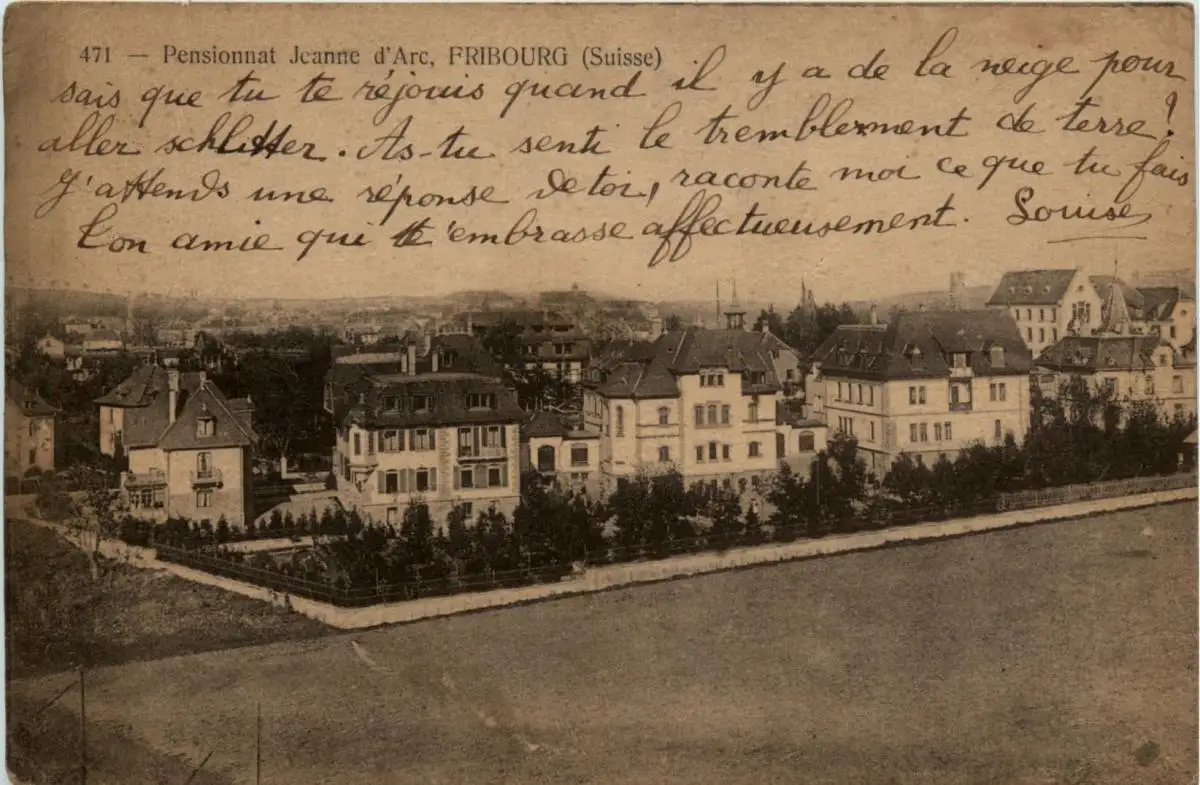 471 — Pensionnat Jeanne d'Arc, FRIBOURG (Suisse)
sais que tu te réjouis quand il y a de la neige pour
aller schlitter. As-tu senti le tremblement de terre?
J'attends une réponse de toi, raconte moi ce que tu fais
Ton amie qui t'embrasse affectueusement. Louise